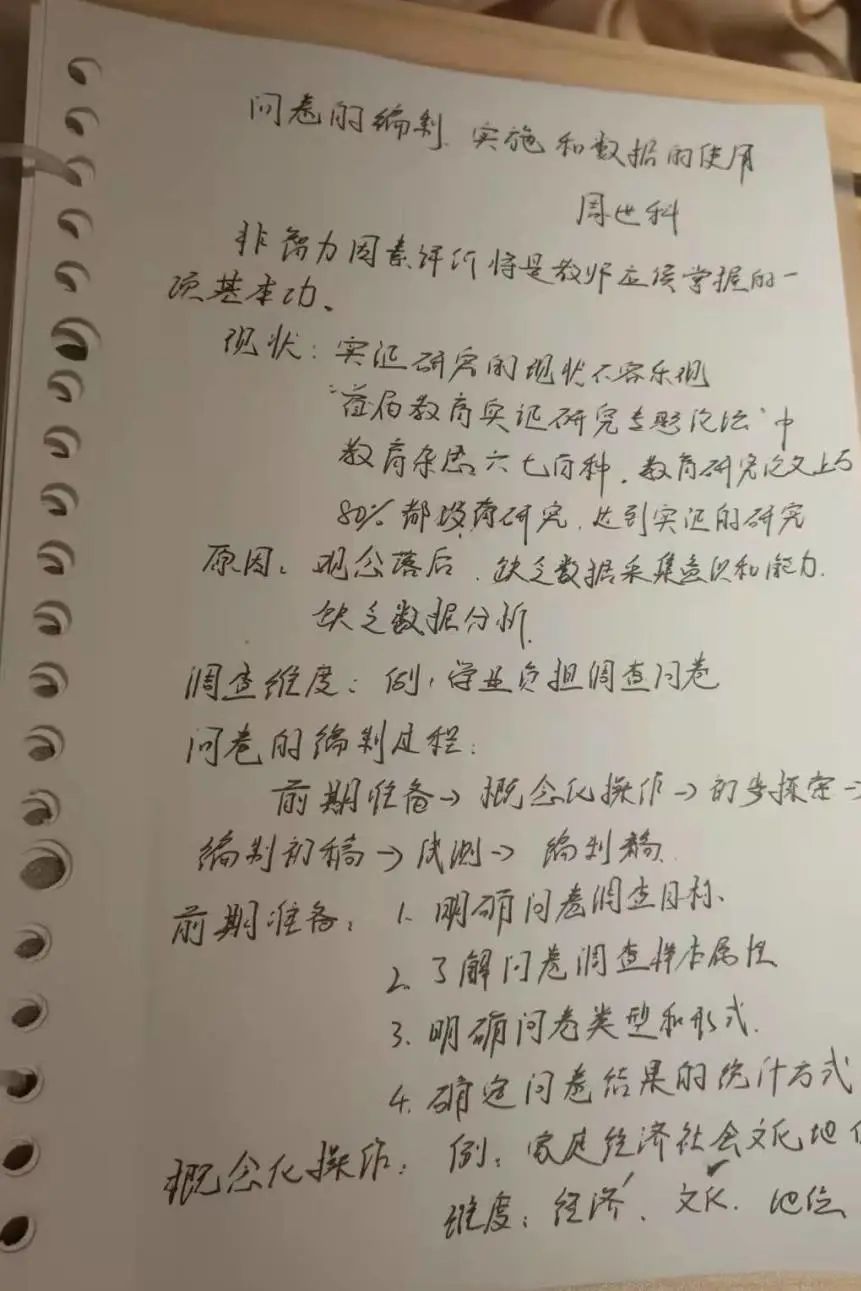 问卷的编制、实施和数据的使用
周世科
非智力因素评价将是教师应须掌握的一
项基本功、
现状：实证研究的现状不容乐观
"首届教育实证研究专题论坛"中
教育杂志六七百种，教育研究论文上万
80% 都没有研究，达到实证的研究
原因：观念落后、缺乏数据采集意识和能力.
缺乏数据分析.
调查维度：例，学业负担调查问卷
问卷的编制过程：
前期准备→概念化操作→初步探索→
编制初稿→试测→编制稿.
前期准备：1. 明确问卷调查目标、
2. 了解问卷调查样本属性
3. 明确问卷类型和形式.
4. 确定问卷结果的统计方式
概念化操作：例：家庭经济社会文化地
维度：经济、文化、地位